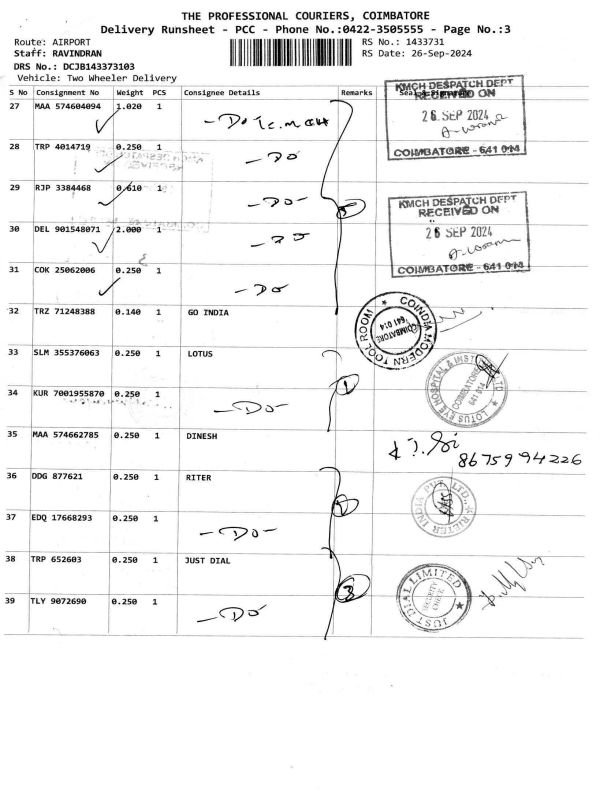 THE PROFESSIONAL COURIERS, COIMBATORE
Delivery Runsheet - PCC - Phone No.:0422-3505555 - Page No.:3
Route: AIRPORT RS No.: 1433731
Staff: RAVINDRAN RS Date: 26-Sep-2024
DRS No.: DCJB143373103
Vehicle: Two Wheeler Delivery
S No Consignment No Weight PCS Consignee Details Remarks
27 MAA 574604094 1.020 1
KMCH DESPATCH DEPT
RECEIVED ON
26 SEP 2024
COIMBATORE - 641 014
28 TRP 4014719 0.250 1 - DO
29 RJP 3384468 0.610 1 - DO -
KMCH DESPATCH DEPT
RECEIVED ON
26 SEP 2024
COIMBATORE - 641 014
30 DEL 901548071 2.000 1 - DO
31 COK 25062006 0.250 1 - DO
5
32 TRZ 71248388 0.140 1 GO INDIA
COINDIA MODERN TOOL ROOM
COIMBATORE
641 014
33 SLM 355376063 0.250 1 LOTUS
LOTUS EYE HOSPITAL & INSTITUTE LTD
COIMBATORE
641 014
34 KUR 7001955870 0.250 1 - DO -
35 MAA 574662785 0.250 1 DINESH
8675994226
36 DDG 877621 0.250 1 RITER
RIETER INDIA PVT. LTD.,
37 EDQ 17668293 0.250 1 - DO -
38 TRP 652603 0.250 1 JUST DIAL
3
JUST DIAL LIMITED
SECURITY
CHECK
39 TLY 9072690 0.250 1 - DO